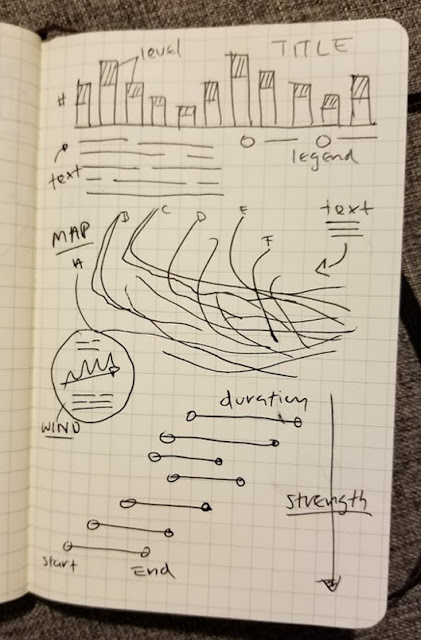 level
TITLE
#
text
legend
B
C
D
E
F
text
MAP
A
WIND
duration
strength
start
End